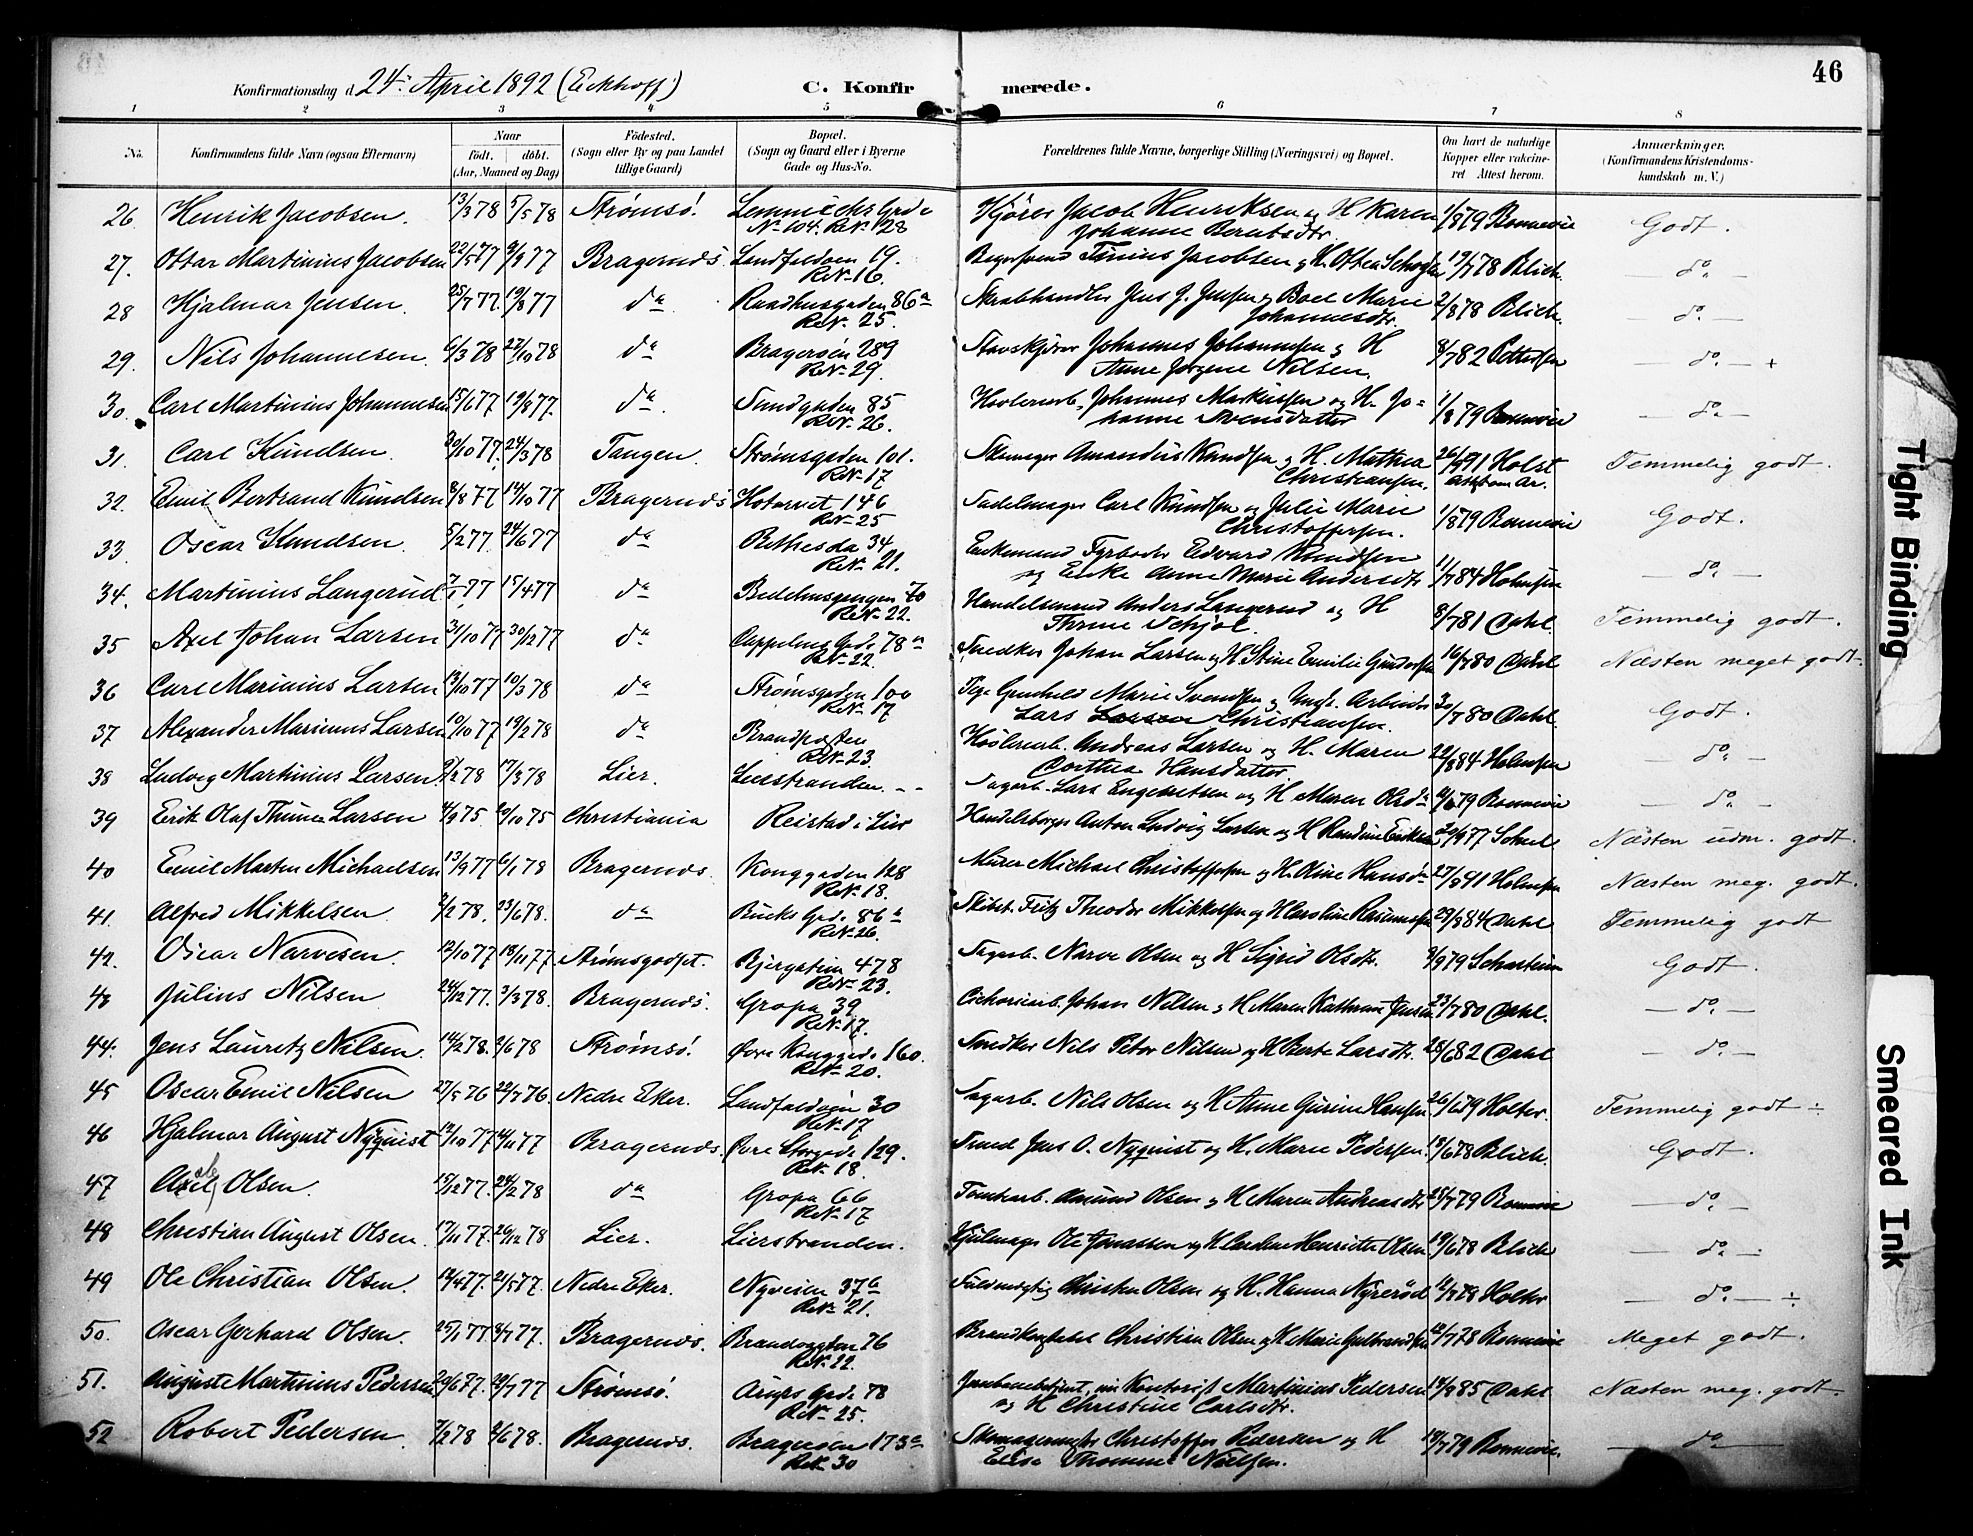 46
Konfirmationsdag d. 24. April 1892 (Eckhoff)
C. Konfirmerede.
1 2 3 4 5 6 7 8
No. Konfirmandens fulde Navn (ogsaa Efternavn) Naar födt. döbt. (Aar, Maaned og Dag) Födested. (Sogn eller By og paa Landet tillige Gaard) Bopæl. (Sogn og Gaard eller i Byerne Gade og Hus-No. Forældrenes fulde Navne, borgerlige Stilling (Næringsvei) og Bopæl. Om havt de naturlige Kopper eller vaccineret Attest herom. Anmærkninger. (Konfirmandens Kristendomskundskab m. V.)
26. Henrik Jacobsen. 13/3 78 5/5 78 Strømsö. Jacob Henriksen og H Karen 1/8 79 Bonnevie Godt.
No 104. ReN. 128 Johanne Berntsdtr
27. Ottar Martinius Jacobsen 22/5 77 77 Bragernæs Landfaldøen 19. Jacobsen 19/7 78 Blich. do
ReN. 16.
28 Hjalmar Jensen. 25/7 77. 19/8 77 da Raadhusgaden 86a Skrabhandler Jens J. Jensen og Boel Marie 2/8 78 Blich. do
ReN. 25. Johannesdtr.
29. Nils Johannesen. 6/3 78 22/10 78 da Bragerøen 289 Johannes Johannesen og H 8/7 82 Pettersen do +
ReN. 29. Anne Jørgine Nilsen.
30. Carl Martinius Johannesen 15/6 77 19/8 77. da Sundgaden 85 Høvlerarb. Johannes Markussen og H. Jo= 1/8 79 Bonnevie do
ReN. 26. hanne Svensdatter
31. Carl Knudsen. 30/10 77. 24/3 78 Tangen. Strømsgaden 101. Amandus Knudsen og H. Mathea 91 Holst Temmelig godt.
ReN. 17 Christiansen.
32. Emil Bertrand Knudsen 8/8 77 14/10 77 Bragernæs 146 Sadelmager Carl Knudsen og Julie Marie 1/8 79 Bonnevie Godt.
ReN. 25 Christoffersen.
33. Oscar Knudsen. 5/2 77. 24/6 77 da Bethesda 34 Enkemand Fyrbøder Edvard Knudsen 11/7 84 Holmsen do
ReN. 21. og Enke Anne Marie Andersdtr
34. Martinius Langerud 7/1 77 15/4 77 da Bedehusgangen 70 Handelsmand Anders Langerud og H 8/7 81 Dahl. Temmelig godt.
ReN. 22. Thrine Schjøl.
35 Axel Johan Larsen 31/10 77 30/12 77 da Cappelens Gade 78a Snedker Johan Larsen og H Stine Emilie 16/7 80 Dahl Næsten meget godt.
ReN. 22.
36 Carl Marinius Larsen 13/10 77 10/3 78 da Strømsgaden 100 Pige Gunhild Marie Svendsen og Ungk. Arbeider 30/7 80 Dahl. Godt.
ReN. 17 Lars Larsen Christiansen.
37 Alexander Marinius Larsen 10/10 77 19/2 78 da Brandposten Høvlerarb. Andreas Larsen og H. Maren 22/8 84 Holmsen do
ReN. 23. Dorthea Hansdatter
38 Ludvig Martinius Larsen. 78 17/3 78 Lier. Lierstranden. Sagarb. Lars Engebretsen og H Maren Olsdr 79 Bonnevie do
39 Erik Olaf Thune Larsen 4/9 75 20/10 75 Christiania Reistad i Lier Handelsborger Anton Ludvig Larsen og H Randine 77 Næsten udm. godt.
40 Emil Marten Michaelsen 13/9 77 6/1 78 Bragernæs. Konggaden 128 Murer Michael Christoffersen og H. Oline Hansdr 27/8 91 Holmsen Næsten meg. godt.
ReN. 18.
41. Alfred Mikkelsen. 2/2 78. 23/6 78. da Bucks Gd. 86a Fritz Theodor Mikkelsen og H Caroline 29/8 84 Dahl Temmelig godt
ReN. 26.
42. Oscar Narvesen. 12/10 77 18/11 77 Strømsgodset. 478 Sagarb. Narve Olsen og H Sigrid Olsdtr. 9/9 79 Godt.
ReN. 23.
43 Julius Nilsen 24/12 77. 3/3 78. Bragernæs. Gropa 39 Johan Nilsen og H Maren Kathrine Jensen 23/7 80 Dahl. do
ReN. 17.
44. Jens Lauritz Nilsen. 14/2 78. 9/6 78 Strømsö. Øvre Konggade 160. Snedker Nils Peter Nilsen og H Berte Larsdtr. 28/6 82 Dahl do
ReN. 20.
45 Oscar Emil Nilsen 27/5 76 22/7 76. Nedre Eker. Landfaldøen 30 Sagarb. Nils Olsen og H Anne Gurine Hansen 26/6 79 Holter Temmelig godt ÷
ReN. 17
46 Hjalmar August Nyquist 12/10 77 4/11 77 Bragernæs. Øvre Storgade 129. Smed Jens O. Nyquist og H. Marie Pedersen. 18/6 78 Blich. Godt.
ReN. 18.
47 Axel Olsen. 15/12 77. 24/2 78 da Gropa 66 Tomtearb. Amund Olsen og H Maren Andreasdtr 25/7 79 Bonnevie do
ReN. 17
48 Christian August Olsen. 17/11 77. 26/12 78 Lier. Lierstranden. Hjulmager Ole Jonassen og H Caroline Henriette Olsen 19/6 78 Blich do
49 Ole Christian Olsen. 12/4 77. 21/5 77. Nedre Eker. Nyveien 37b Christen Olsen og H. Hanna Nyrerød 78 Holter do ÷
ReN. 21.
50. Oscar Gerhard Olsen. 25/1 77 8/7 77. Bragernæs. 76 Brandkonstabel Christian Olsen og H Marie Gulbrandsen 12/7 78 Bonnevie Meget godt.
ReN. 22.
51. August Martinius Pedersen 20/6 77. 29/7 77 Strømsö. Arups Gd. 78 Jernbanebetjent, nu Kontorist Martinius Pedersen 14/8 85 Dahl Næsten meg. godt.
ReN. 25. og H Christine Carlsdtr.
52 Robert Pedersen 7/2 78 2/6 78. Bragernæs. Bragerøen 173a Skomagermester Christoffer Pedersen og H 18/7 79 Bonnevie. do
ReN. 30 Elise Thomine Nielsen.
Tight Binding
Smeared Ink